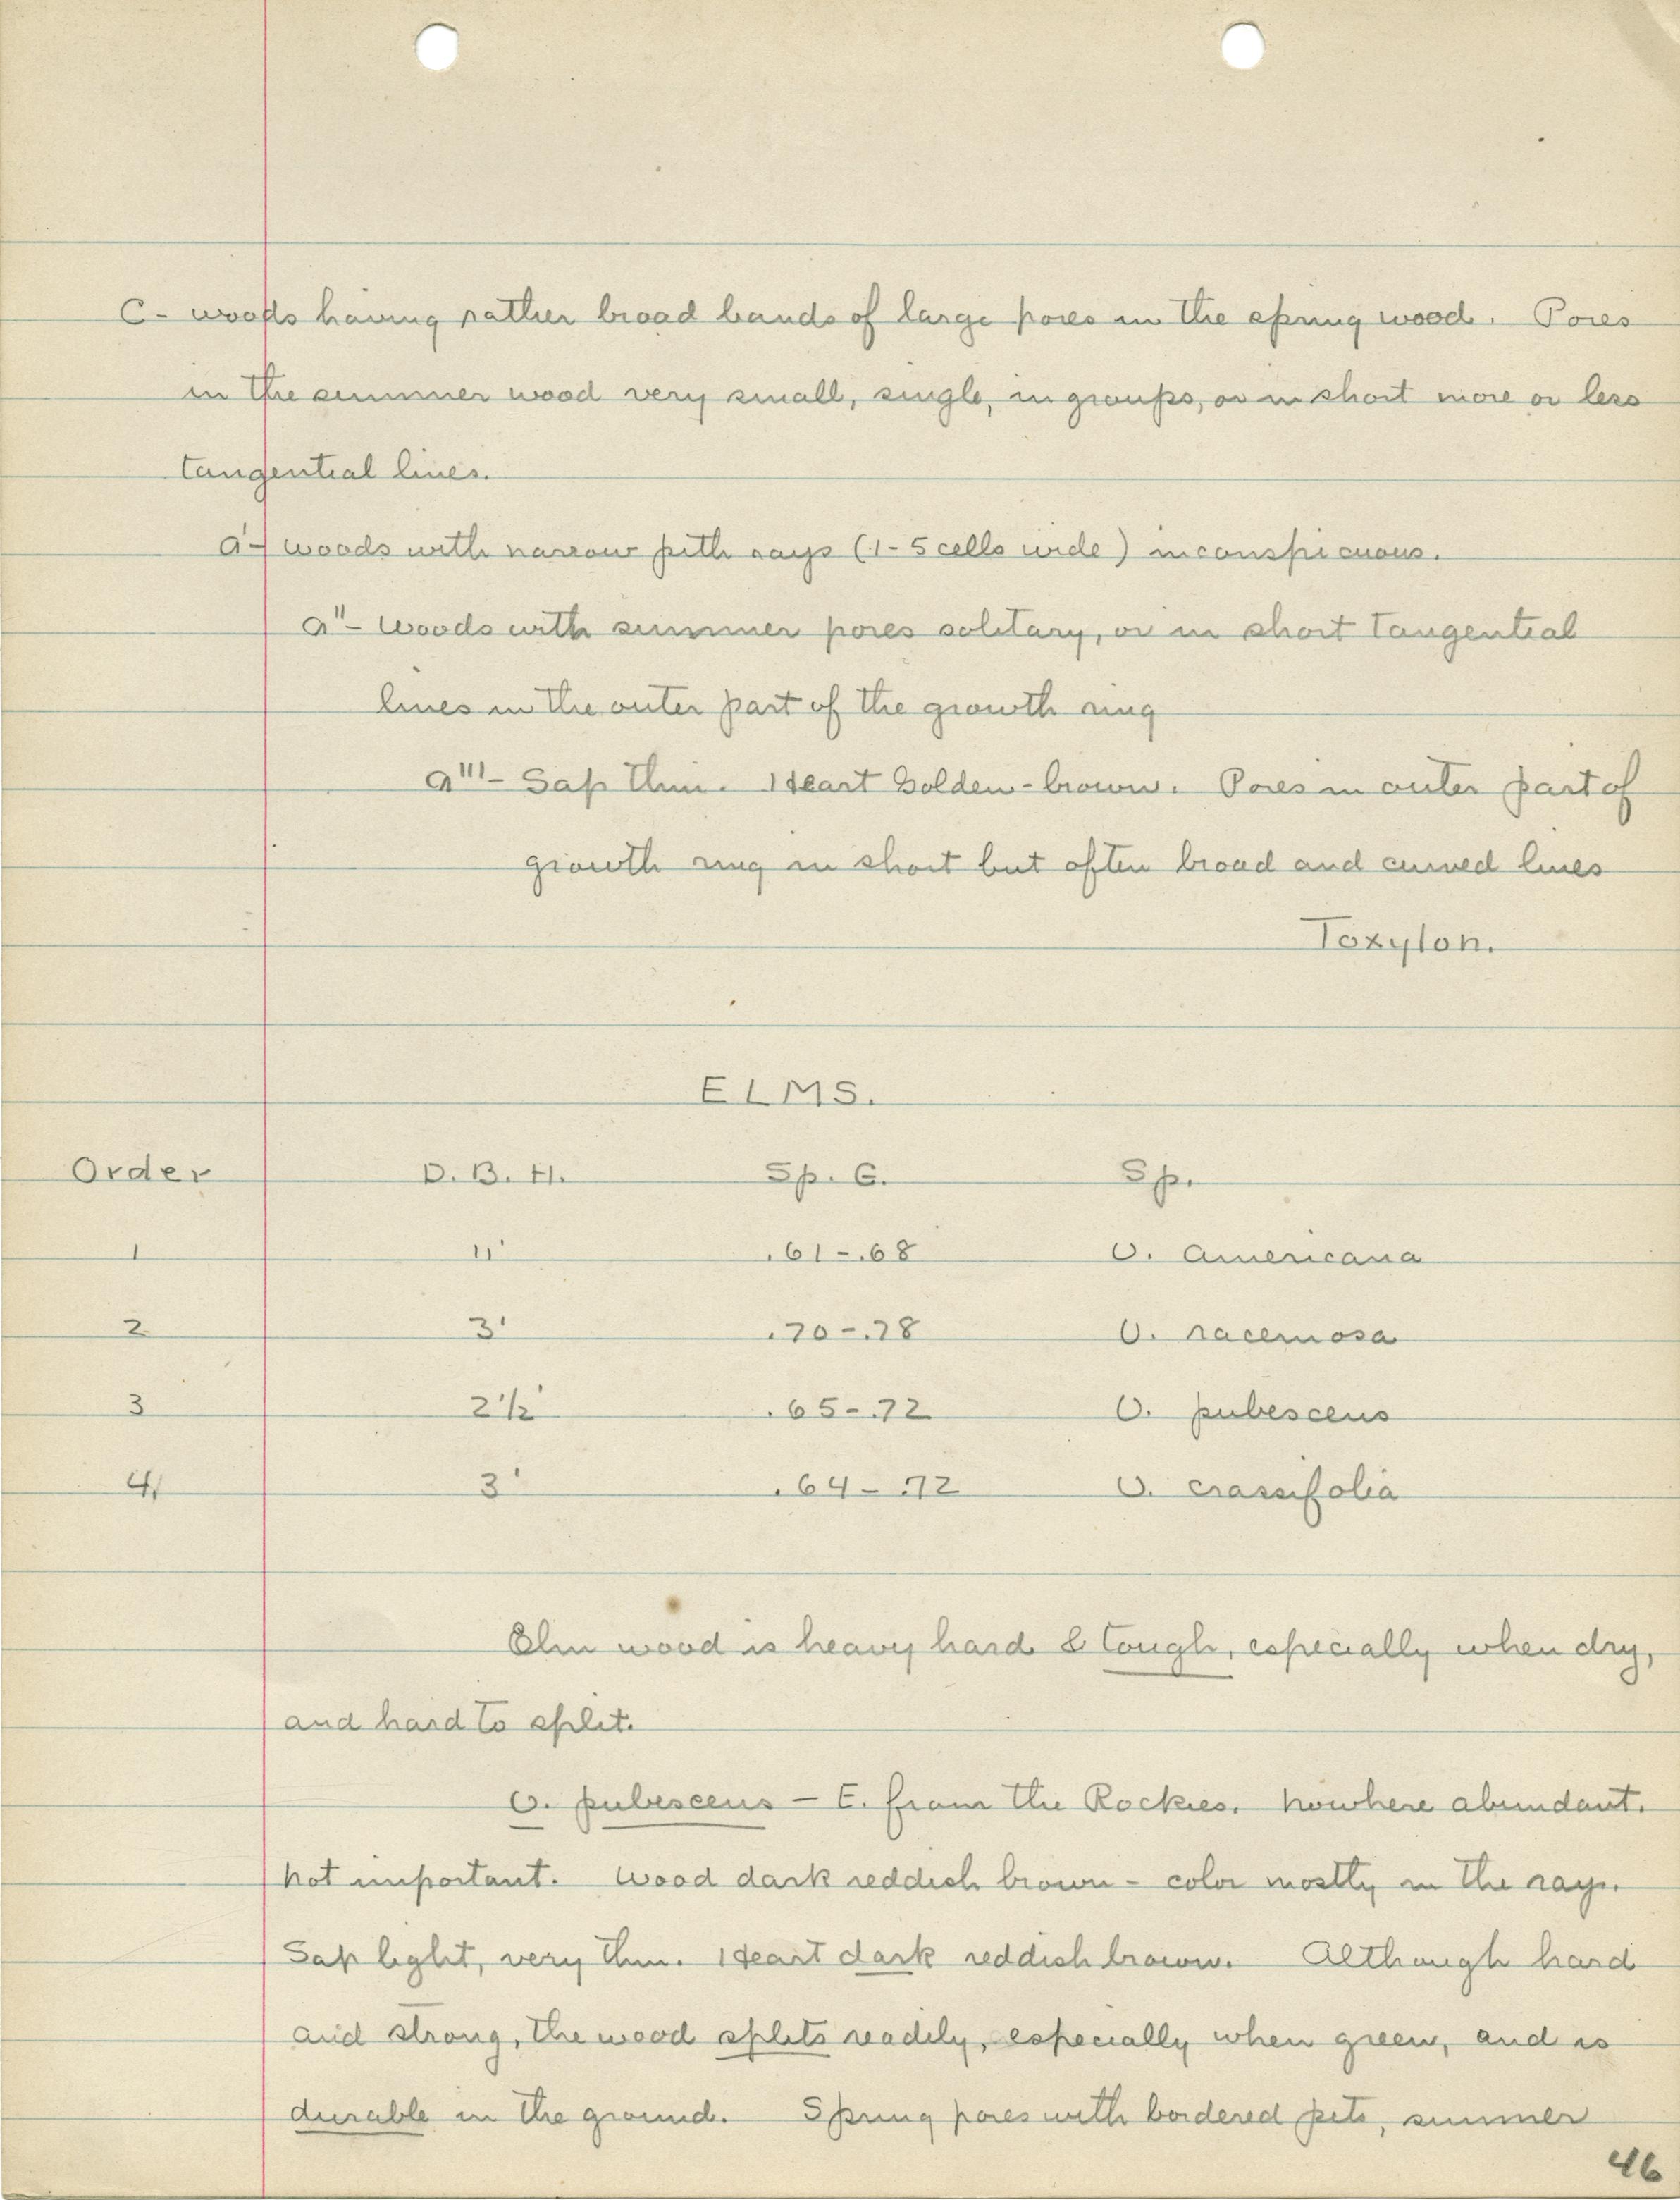 C- woods having rather broad bands of large pores in the spring wood. Pores
in the summer wood very small, single, in groups, or in short more or less
tangential lines.
a'- woods with narrow pith rays (1-5 cells wide) inconspicuous.
a"- Woods with summer pores solitary, or in short tangential
lines in the outer part of the growth ring
a"'- Sap thin. Heart Golden-brown. Pores in outer part of
growth ring in short but often broad and curved lines
Toxylon.
ELMS.
Order D.B.H. Sp. G. Sp.
1 11' .61-.68 U. Americana
2 3' .70-.78 U. racemosa
3 2 1/2' .65-.72 U. pubescens
4 3' .64-.72 U. crassifolia
Elm wood is heavy hard & tough, especially when dry,
and hard to split.
U. pubescens - E. from the Rockies. Nowhere abundant.
Not important. Wood dark reddish brown - color mostly in the rays.
Sap light, very thin. Heart dark reddish brown. Although hard
and strong, the wood splits readily, especially when green, and is
durable in the ground. Spring pores with bordered pits, summer
46